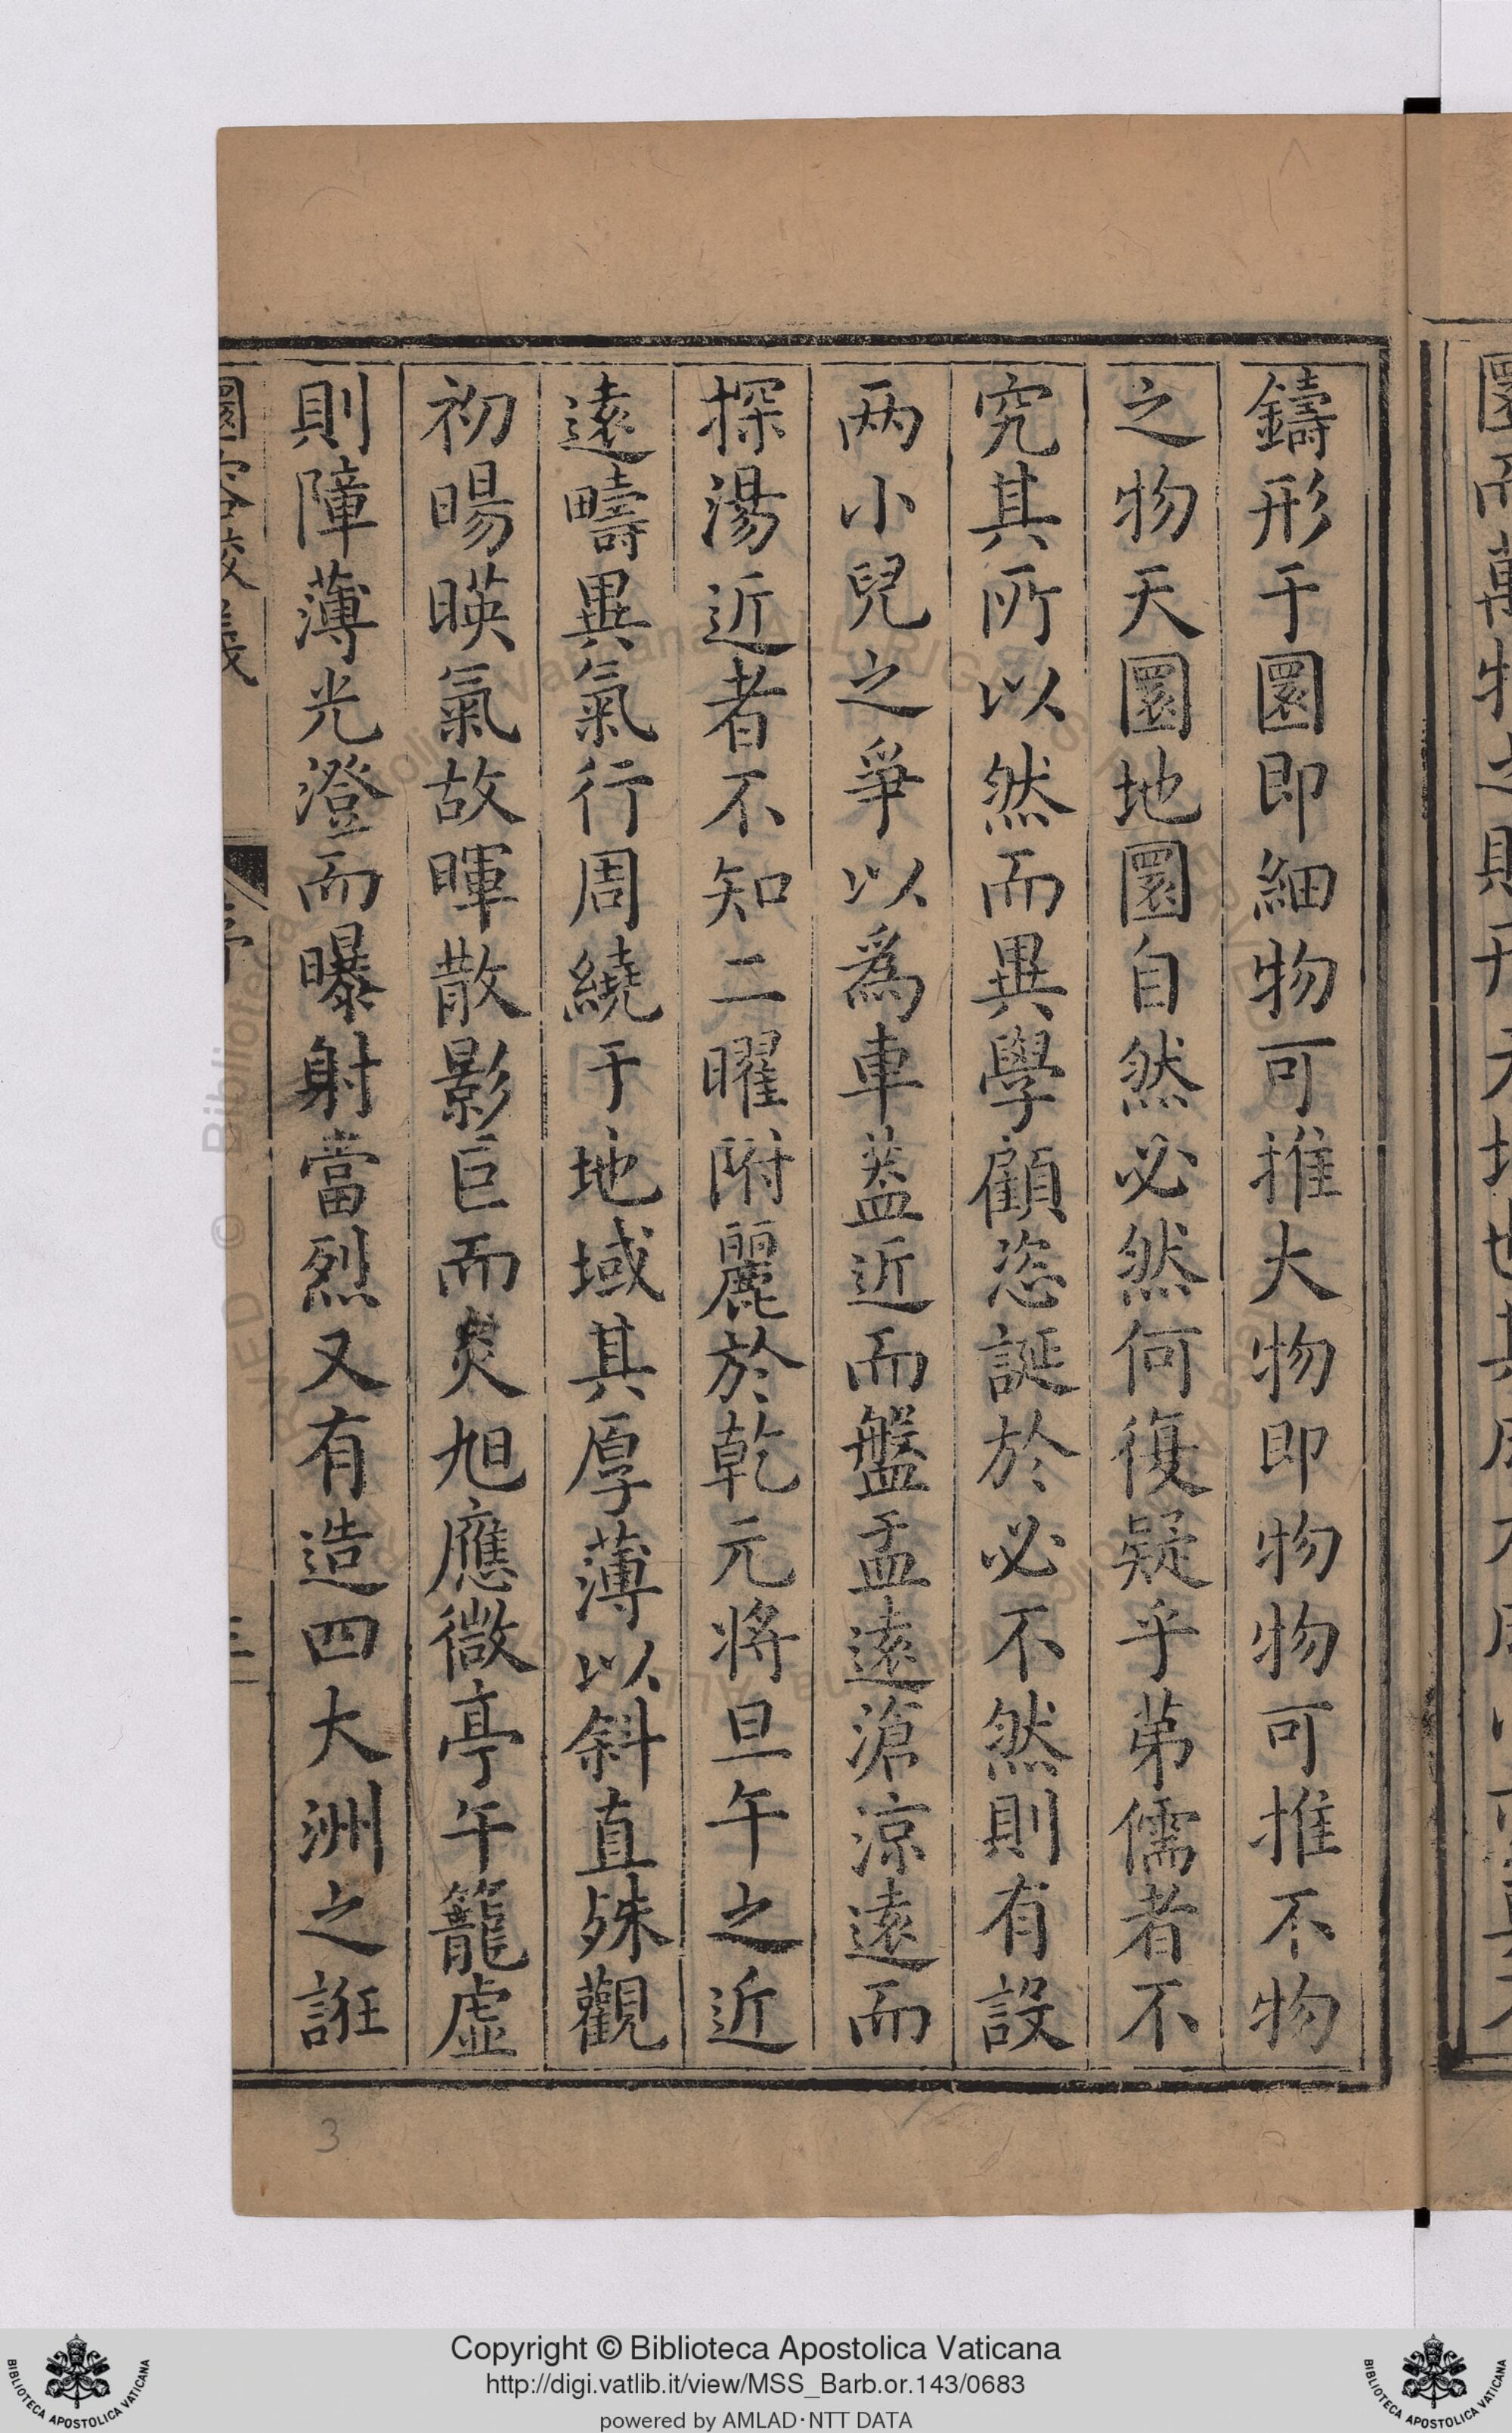 鑄形于圜即細物可推大物即物物可推不物
之物天圜地圜自然必然何復疑乎苐儒者不
究其所以然而異學顧恣誕於必不然則有設
两小兒之爭以爲車葢近而盤盂遠滄涼遠而
探湯近者不知二曜附麗於乾元將旦午之近
遠疇異氣行周繞于地域其厚薄以斜直殊觀
初暘暎氣故暉散影巨而炎旭應微亭午籠虛
則障薄光澄而曝射當烈又有造四大洲之誑
圜容較義
序
三
3
Copyright © Biblioteca Apostolica Vaticana
http://digi.vatlib.it/view/MSS_Barb.or.143/0683
powered by AMLAD·NTT DATA
BIBLIOTECA APOSTOLICA VATICANA
BIBLIOTECA APOSTOLICA VATICANA